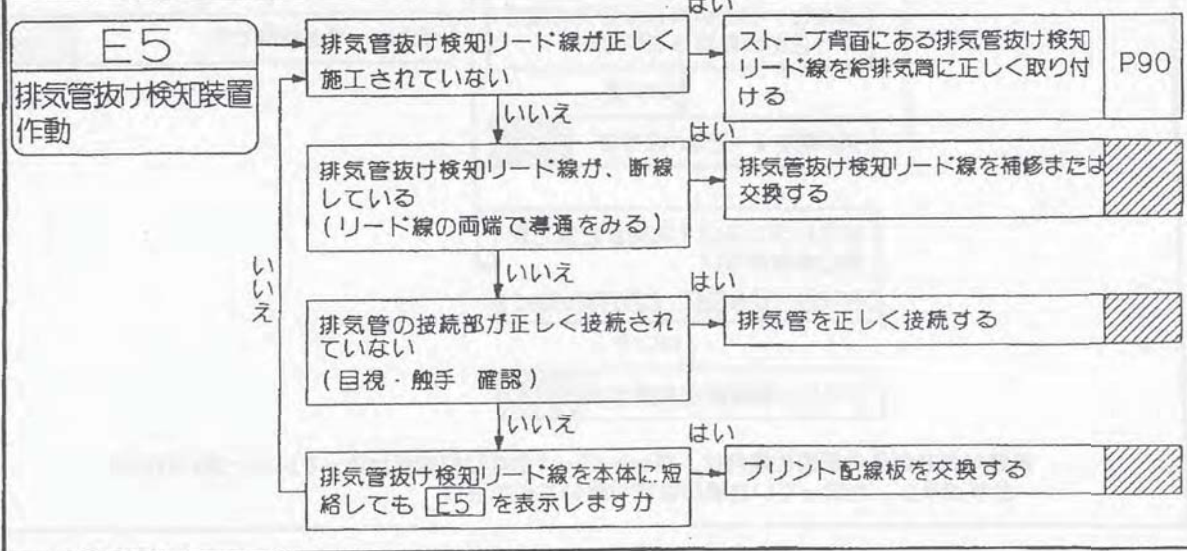 はい
E5
排気管抜け検知装置
作動
排気管抜け検知リード線が正しく
施工されていない
ストーブ背面にある排気管抜け検知
リード線を給排気筒に正しく取り付
ける
P90
いいえ
はい
排気管抜け検知リード線が、断線
している
(リード線の両端で導通をみる)
排気管抜け検知リード線を補修または
交換する
いいえ
いいえ
はい
排気管の接続部が正しく接続され
ていない
(目視・触手 確認)
排気管を正しく接続する
いいえ
はい
排気管抜け検知リード線を本体に短
絡しても E5 を表示しますか
プリント配線板を交換する